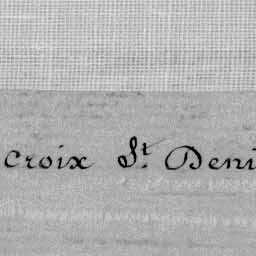 Croix St. Deni